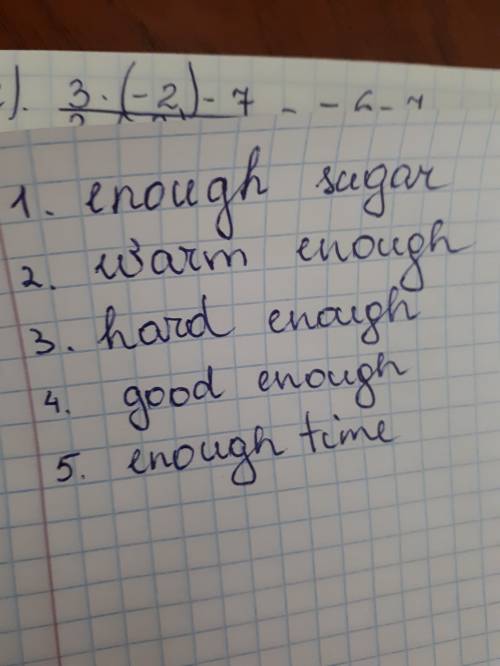 3 · (-2) - 7
1. enough sugar
2. warm enough
3. hard enough
4. good enough
5. enough time